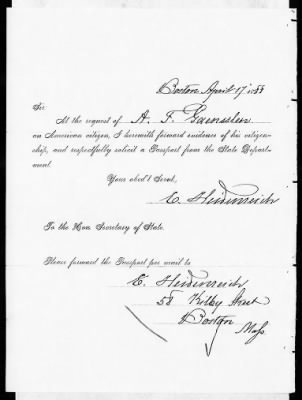 Boston April 17 1888
Sir:
At the request of A. F.
an American citizen, I herewith forward evidence of his citizen-
ship, and respectfully solicit a Passport from the State Depart-
ment.
Your obed't Servt,
E. Heidenreich
To the Hon. Secretary of State.
Please forward the Passport per mail to
E. Heidenreich
58 Kilby Street
Boston
Mass